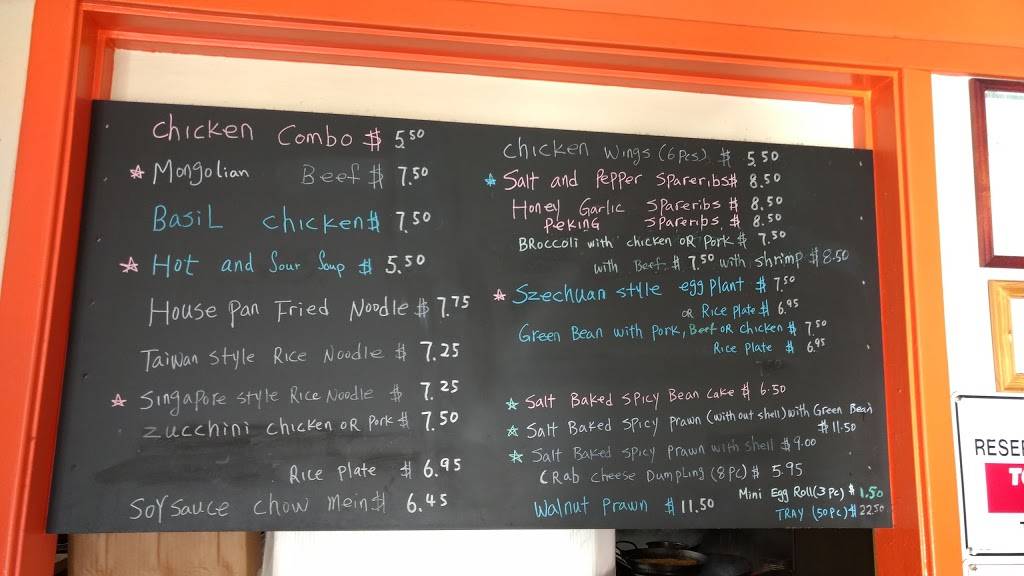 Chicken Combo $ 5.50
☆ Mongolian Beef $ 7.50
Basil Chicken $ 7.50
☆ Hot and Sour Soup $ 5.50
House Pan Fried Noodle $ 7.75
Taiwan Style Rice Noodle $ 7.25
☆ Singapore style Rice Noodle $ 7.25
Zucchini Chicken OR Pork $ 7.50
Rice Plate $ 6.95
Soy Sauce Chow Mein $ 6.45
Chicken Wings (6 pcs) $ 5.50
☆ Salt and Pepper Spareribs $ 8.50
Honey Garlic Spareribs $ 8.50
Peking Spareribs $ 8.50
Broccoli with chicken OR Pork $ 7.50
with Beef $ 7.50 with shrimp $ 8.50
☆ Szechuan style egg plant $ 7.50
OR Rice Plate $ 6.95
Green Bean with Pork, Beef OR Chicken $ 7.50
Rice Plate $ 6.95
☆ Salt Baked Spicy Bean Cake $ 6.50
☆ Salt Baked Spicy Prawn (with out shell) with Green Bean
$ 11.50
☆ Salt Baked Spicy Prawn with shell $ 9.00
Crab cheese Dumpling (8 pc) $ 5.95
Walnut Prawn $ 11.50
Mini Egg Roll (3 Pc) $ 1.50
TRAY (50 Pc) $ 22.50
RESE